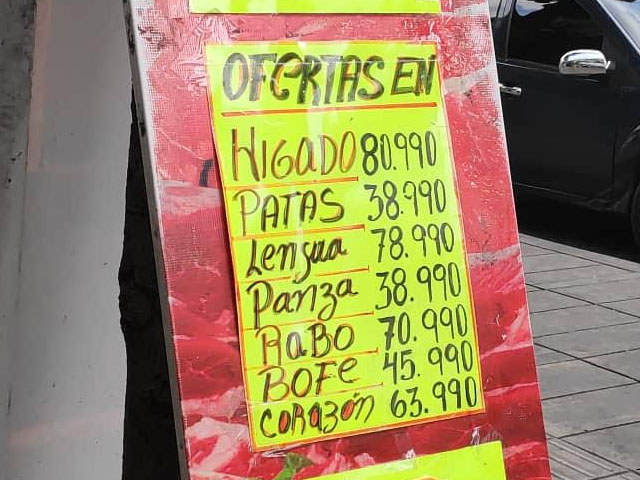 OFERTAS EN
HIGADO 80.990
PATAS 38.990
Lengua 78.990
Panza 38.990
RaBO 70.990
BOFe 45.990
CORAZóN 63.990